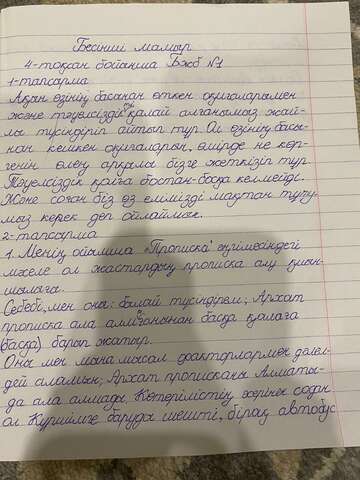 Бесінші мамыр
4-тоқсан бойынша Бжб №1
1-тапсырма
Ақын өзінің басынан өткен оқиғаларымен
және тәуелсіздікті қалай алғанымыз жай-
лы түсіндіріп айтып тұр. Ол өзінің басы-
нан кешкен оқиғаларын, өмірде не көр-
генін өлең арқылы бізге жеткізіп тұр.
Тәуелсіздік қайға бостан-босқа келмейді.
Және соған біз өз елімізді мақтан тұту-
мыз керек деп ойлаймын.
2-тапсырма
1. Менің ойымша "Прописка" әңгімесіндегі
мәселе ол жастардың прописка алу қиын-
шылығы.
Себебі, мен оны: былай түсіндірем; Архат
прописка ала алмағанынан басқа қалаға
(басқа) барып жатыр.
Оны мен мына мысал факторлармен дәлел-
дей аламын; Архат прописканы Алматы-
да ала алмады. Көтерілістің әсерінен содан
ол Күршімге баруды шешті, бірақ автобус